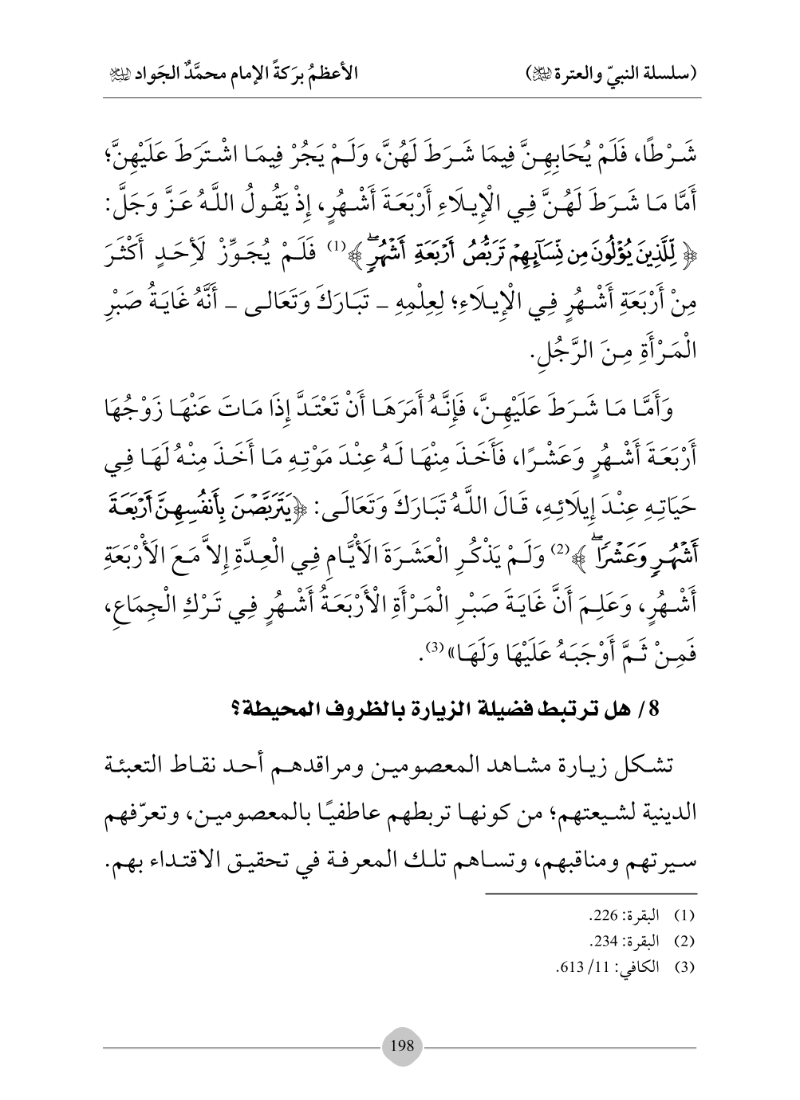 (سلسلة النبيّ والعترة ﷺ) الأعظمُ بركةً الإمام محمَّدٌ الجَواد
شَرْطًا، فَلَمْ يُحَابِهِنَّ فِيمَا شَرَطَ لَهُنَّ، وَلَمْ يَجُرْ فِيمَا اشْتَرَطَ عَلَيْهِنَّ؛
أَمَّا مَا شَرَطَ لَهُنَّ فِي الْإِيلَاءِ أَرْبَعَةَ أَشْهُرٍ، إِذْ يَقُولُ اللَّهُ عَزَّ وَجَلَّ:
﴿ لِّلَّذِينَ يُؤْلُونَ مِن نِّسَآئِهِمْ تَرَبُّصُ أَرْبَعَةِ أَشْهُرٍۖ ﴾(1) فَلَمْ يُجَوِّزْ لَأِحَدٍ أَكْثَرَ
مِنْ أَرْبَعَةِ أَشْهُرٍ فِي الْإِيلَاءِ؛ لِعِلْمِهِ ـ تَبَارَكَ وَتَعَالى ـ أَنَّهُ غَايَةُ صَبْرِ
الْمَرْأَةِ مِنَ الرَّجُلِ.
وَأَمَّا مَا شَرَطَ عَلَيْهِنَّ، فَإِنَّهُ أَمَرَهَا أَنْ تَعْتَدَّ إِذَا مَاتَ عَنْهَا زَوْجُهَا
أَرْبَعَةَ أَشْهُرٍ وَعَشْرًا، فَأَخَذَ مِنْهَا لَهُ عِنْدَ مَوْتِهِ مَا أَخَذَ مِنْهُ لَهَا فِي
حَيَاتِهِ عِنْدَ إِيلَائِهِ، قَالَ اللَّهُ تَبَارَكَ وَتَعَالَى: ﴿يَتَرَبَّصْنَ بِأَنفُسِهِنَّ أَرْبَعَةَ
أَشْهُرٍ وَعَشْرًاۖ ﴾(2) وَلَمْ يَذْكُرِ الْعَشَرَةَ الأَيَّامِ فِي الْعِدَّةِ إِلاَّ مَعَ الَأرْبَعَةِ
أَشْهُرٍ، وَعَلِمَ أَنَّ غَايَةَ صَبْرِ الْمَرْأَةِ الْأَرْبَعَةُ أَشْهُرٍ فِي تَرْكِ الْجِمَاعِ،
فَمِنْ ثَمَّ أَوْجَبَهُ عَلَيْهَا وَلَهَا»(3).
8/ هل ترتبط فضيلة الزيارة بالظروف المحيطة؟
تشكل زيارة مشاهد المعصومين ومراقدهم أحد نقاط التعبئة
الدينية لشيعتهم؛ من كونها تربطهم عاطفيًا بالمعصومين، وتعرّفهم
سيرتهم ومناقبهم، وتساهم تلك المعرفة في تحقيق الاقتداء بهم.
(1) البقرة: 226.
(2) البقرة: 234.
(3) الكافي: 11/ 613.
198